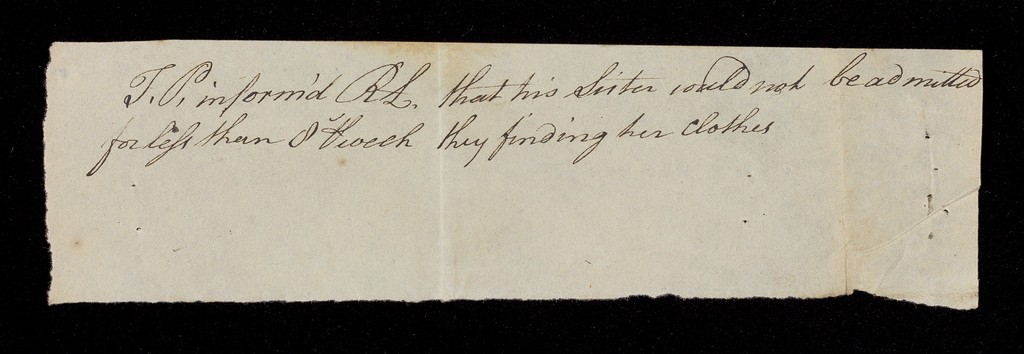 T. P. inform'd R L. that his Sister could not be admitted
for less than 8/ ⅌ week they finding her clothes